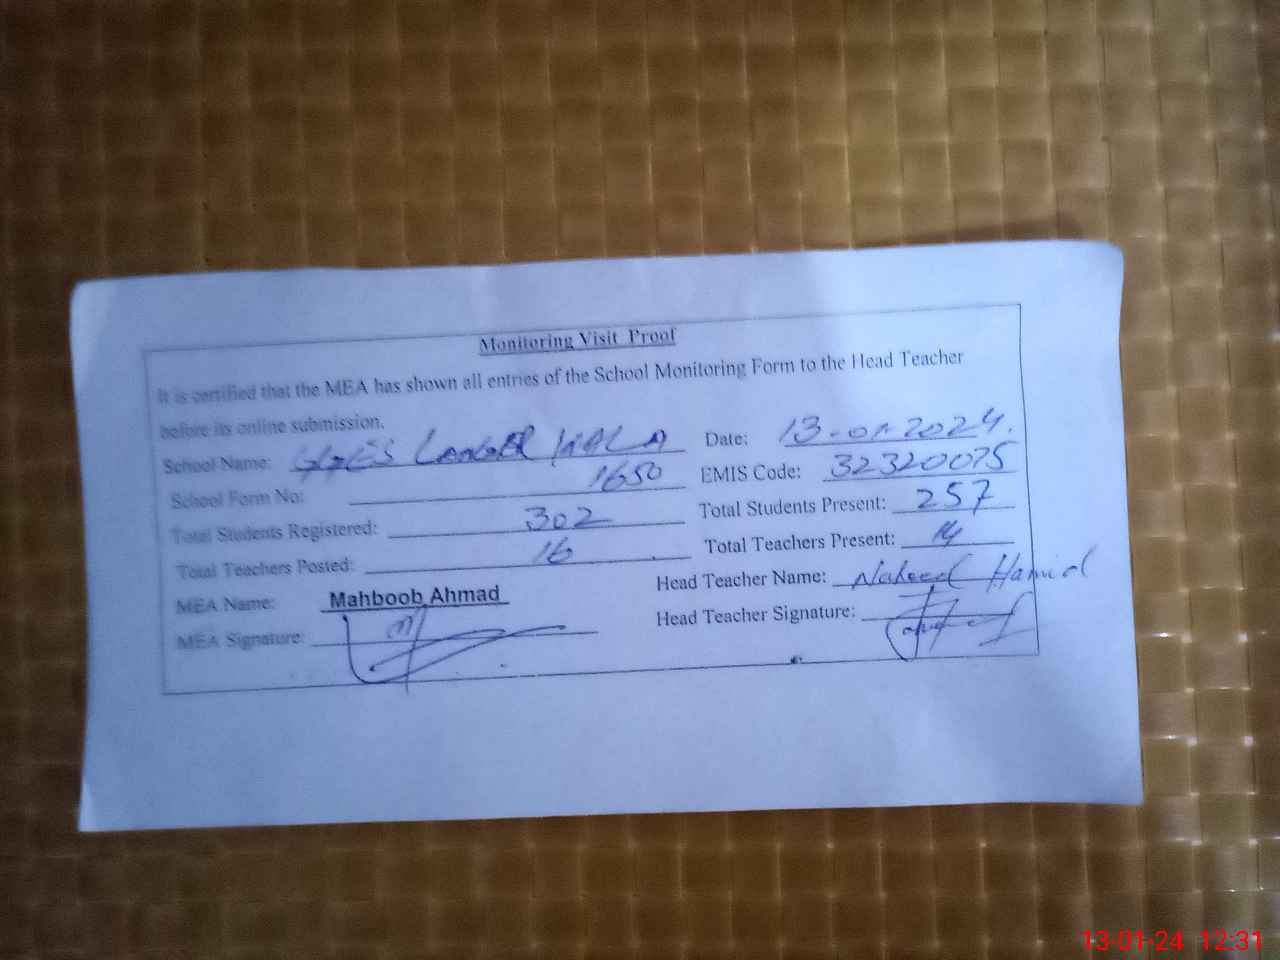 Monitoring Visit Proof
It is certified that the MEA has shown all entries of the School Monitoring Form to the Head Teacher
before its online submission.
School Name: WALA Date: 13-01-2024.
School Form No: 1650 EMIS Code: 32320075
Total Students Registered: 302 Total Students Present: 257
Total Teachers Posted: 16 Total Teachers Present: 14
MEA Name: Mahboob Ahmad Head Teacher Name: Naheed Hamid
MEA Signature: Head Teacher Signature:
13-01-24 12:31